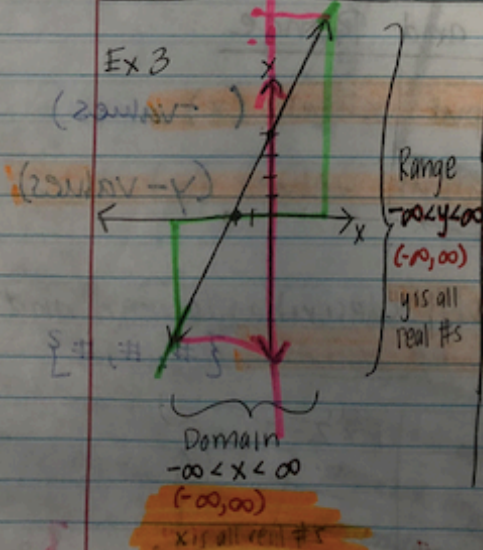 Ex 3
x
x
Range
-∞<y<∞
(-∞,∞)
y is all
real #s
Domain
-∞ < x < ∞
(-∞,∞)
x is all real #s
(y-values)
{#, #, #}